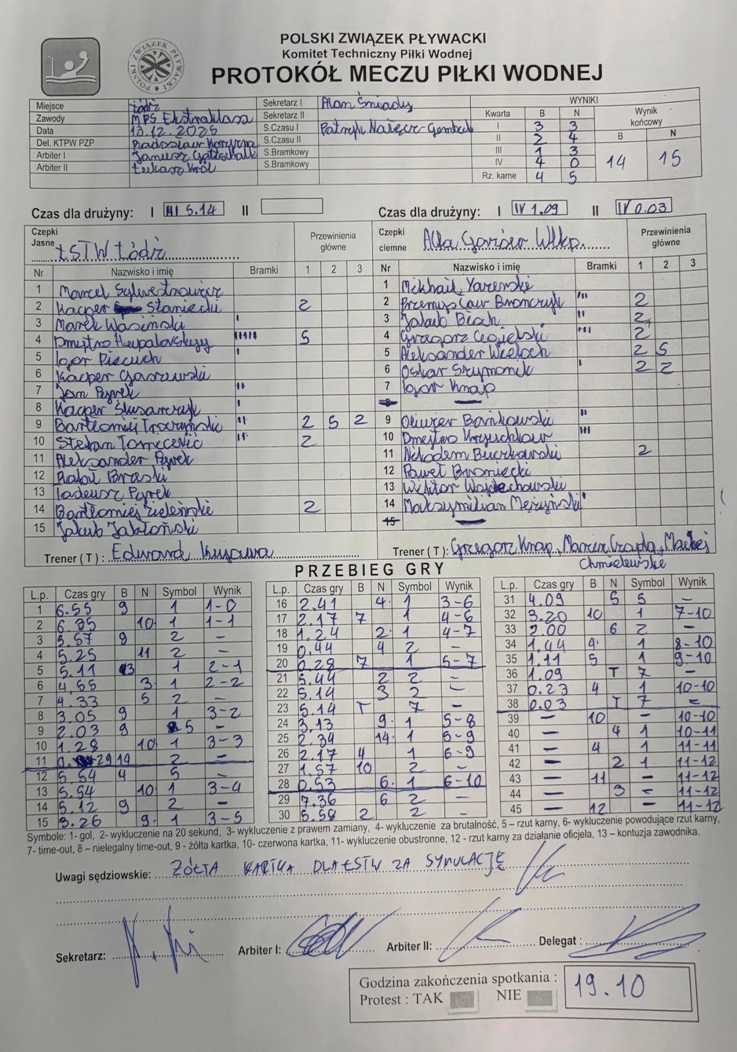 POLSKI ZWIĄZEK PŁYWACKI
Komitet Techniczny Piłki Wodnej
PROTOKÓŁ MECZU PIŁKI WODNEJ
POLSKI ZWIĄZEK PŁYWACKI
Miejsce Łódź Sekretarz I Alan Śniady WYNIKI
Zawody MPS Ekstraklasa Sekretarz II Kwarta B N Wynik końcowy
Data 13.12.2025 S.Czasu I I 3 3 B N
Del. KTPW PZP Radosław S.Czasu II II 2 4
Arbiter I Janusz S.Bramkowy III 1 3 14 15
Arbiter II Łukasz Król S.Bramkowy IV 4 0
Rz. karne 4 5
Czas dla drużyny: I III 5.14 II Czas dla drużyny: I IV 1.09 II IV 0.03
Czepki Jasne ŁSTW Łódź Przewinienia główne Czepki ciemne Alfa Gorzów Wlkp. Przewinienia główne
Nr Nazwisko i imię Bramki 1 2 3 Nr Nazwisko i imię Bramki 1 2 3
1 Marcel Sylwestrowicz 1 Mikhail
2 Kacper Staniecki 2 2 Przemysław III 2
3 Marek Wasiński I 3 Jakub I 2
4 Dmytro IIIII 5 4 Grzegorz III 2
5 Igor Piscuch I 5 Aleksander 2 5
6 Kacper 6 Oskar Szymonek I 2 2
7 Jan Pyrek II 7 Igor Knap
8 Kacper Ślusarczyk 8
9 Bartłomiej Troczyński III 2 5 2 9 Oliwier Bańkowski II
10 Stefan Tomecevic II 2 10 Dmytro III
11 Aleksander Pyrek 11 Nikodem 2
12 Rafał 12 Paweł Broniecki
13 Tadeusz Pyrek 13 Wiktor Wojciechowski
14 Bartłomiej Zieleński 2 14 Maksymilian I
15 Jakub Jabłoński 15
Trener ( T ) : Edward Kujawa Trener ( T ) : Grzegorz Knap, Marcin Czapla, Maciej
Chmielewski
PRZEBIEG GRY
L.p. Czas gry B N Symbol Wynik
1 6.55 9 1 1-0
2 6.35 10 1 1-1
3 5.57 9 2 –
4 5.25 11 2 –
5 5.11 3 1 2-1
6 4.55 3 1 2-2
7 4.33 5 2 –
8 3.05 9 1 3-2
9 2.03 9 5 –
10 1.28 10 1 3-3
11 0.29 14 2 –
12 5.54 4 5 –
13 5.54 10 1 3-4
14 5.12 9 2 –
15 3.26 9 1 3-5
L.p. Czas gry B N Symbol Wynik
16 2.41 4 1 3-6
17 2.17 7 1 4-6
18 1.24 2 1 4-7
19 0.44 4 2 –
20 0.28 7 1 5-7
21 5.44 2 2 –
22 5.14 3 2 –
23 5.14 T 7 –
24 3.13 9 1 5-8
25 2.34 14 1 5-9
26 2.17 4 1 6-9
27 1.57 10 2 –
28 0.53 6 1 6-10
29 7.36 6 2 –
30 5.58 2 2 –
L.p. Czas gry B N Symbol Wynik
31 4.09 5 5 –
32 3.20 10 1 7-10
33 2.00 6 2 –
34 1.44 9 1 8-10
35 1.11 5 1 9-10
36 1.09 T 7 –
37 0.23 4 1 10-10
38 0.03 T 7 –
39 – 10 – 10-10
40 – 4 1 10-11
41 – 4 1 11-11
42 – 2 1 11-12
43 – 11 – 11-12
44 – 3 – 11-12
45 – 12 – 11-12
Symbole: 1- gol, 2- wykluczenie na 20 sekund, 3- wykluczenie z prawem zamiany, 4- wykluczenie za brutalność, 5 – rzut karny, 6- wykluczenie powodujące rzut karny,
7- time-out, 8 – nielegalny time-out, 9 - żółta kartka, 10- czerwona kartka, 11- wykluczenie obustronne, 12 - rzut karny za działanie oficjela, 13 – kontuzja zawodnika.
Uwagi sędziowskie: ŻÓŁTA KARTKA DLA ŁSTW ZA SYMULACJĘ
Sekretarz: Arbiter I: Arbiter II: Delegat :
Godzina zakończenia spotkania : 19.10
Protest : TAK NIE